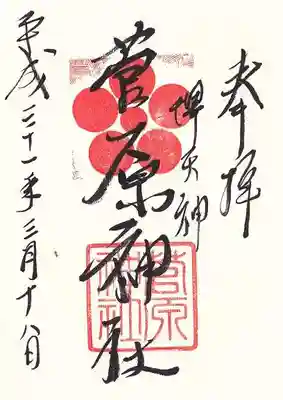 奉拝
埋火神
菅原神社
菅原神社
平成三十一年三月十八日